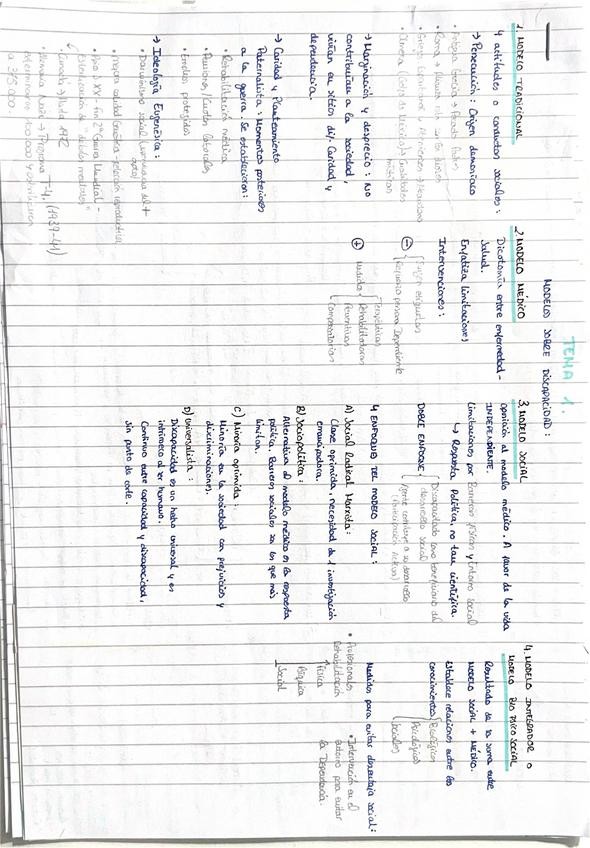 TEMA 1.
MODELOS SOBRE DISCAPACIDAD:
1. MODELO TRADICIONAL
4 actitudes o conductas sociales:
→ Persecución: Origen demoníaco
• Antigua Grecia →
• Roma →
→ Marginación y desprecio: No
contribuían a la sociedad,
vivían en sitios dif. Caridad y
dependencia.
→ Caridad y Planteamiento
Paternalista: Momentos posteriores
a la guerra. Se establecieron:
• Rehabilitación médica
• Pensiones/Cuotas laborales
• Empleos protegidos
→ Ideología Eugenésica:
• Darwinismo social (supervivencia del +
apto)
• Mayor calidad genética - selección reproductiva
fin 2ª Guerra Mundial -
"Esterilización de débiles mentales"
• Alemania Nazi → Programa T-4. (1939-41)
exterminaron 100.000 y esterilizaron
a 375.000.
2. MODELO MÉDICO
Dicotomía entre enfermedad -
salud.
Enfatiza limitaciones
Intervenciones:
⊖ Surgen etiquetas
Refuerzo persona Dependiente
⊕ Medidas
Terapéuticas
Rehabilitadoras
Preventivas
Compensatorias
3. MODELO SOCIAL
Oposición al modelo médico. A favor de la vida
INDEPENDIENTE.
Limitaciones por Barreras físicas y entorno social
↳ Respuesta Política, no tan científica.
DOBLE ENFOQUE:
Discapacitado como beneficiario del
desarrollo social
Gente contribuye a su desarrollo
(Participación Activa)
4 ENFOQUES DEL MODELO SOCIAL:
A) Social Radical Marxista:
Clase oprimida, necesidad de 1 investigación
emancipadora.
B) Sociopolítica:
Alternativa al modelo médico es la respuesta
política. Barreras sociales son las que más
limitan.
C) Minoría oprimida:
Minoría en la sociedad con prejuicios y
discriminaciones.
D) Universalista:
Discapacidad es un hecho universal y es
intrínseco al ser humano.
Continuo entre capacidad y discapacidad,
sin punto de corte.
4. MODELO INTEGRADOR O
MODELO BIO PSICO SOCIAL
Resultado de la suma entre
MODELO SOCIAL + MÉDICO.
Establece relaciones entre los
conocimientos
Biológicos
Psicológicos
Sociales
Medidas para evitar desventaja social:
• Profesionales
Rehabilitación
Física
Psíquica
Social
• Intervención en el
entorno para evitar
la Dependencia.